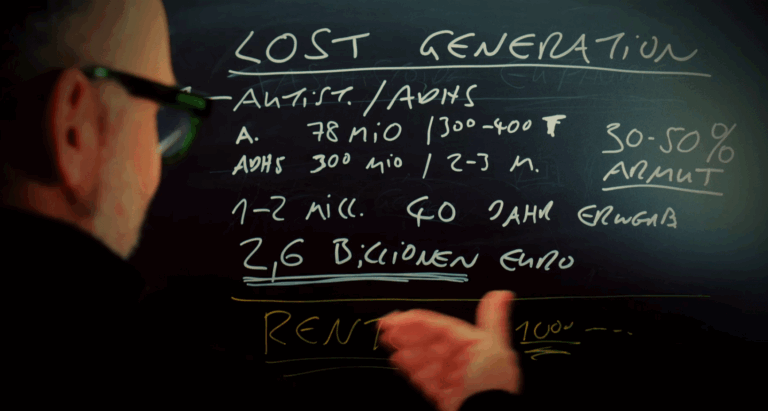 LOST GENERATION
AUTIST. / ADHS
A. 78 MIO / 300-400 T
ADHS 300 MIO / 2-3 M.
30-50%
ARMUT
1-2 MILL. 40 JAHR ERWERB
2,6 BILLIONEN EURO
1000 ---